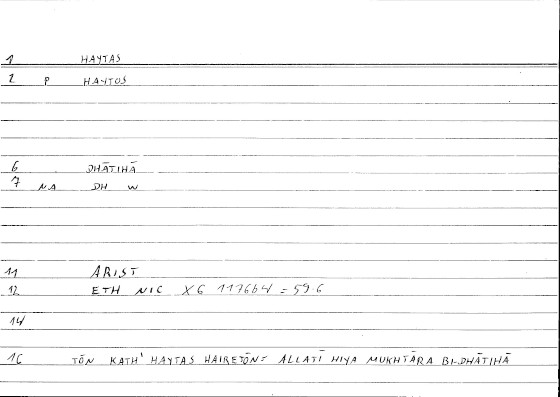 1 HAYTAS
2 P HAYTOS
6 DHĀTIHĀ
7 NA DH W
11 ARIST
12 ETH NIC X6 1176b4 = 59.6
14
16 TŌN KATH' HAYTAS HAIRETŌN = ALLATĪ HIYA MUKHTĀRA BI-DHĀTIHĀ